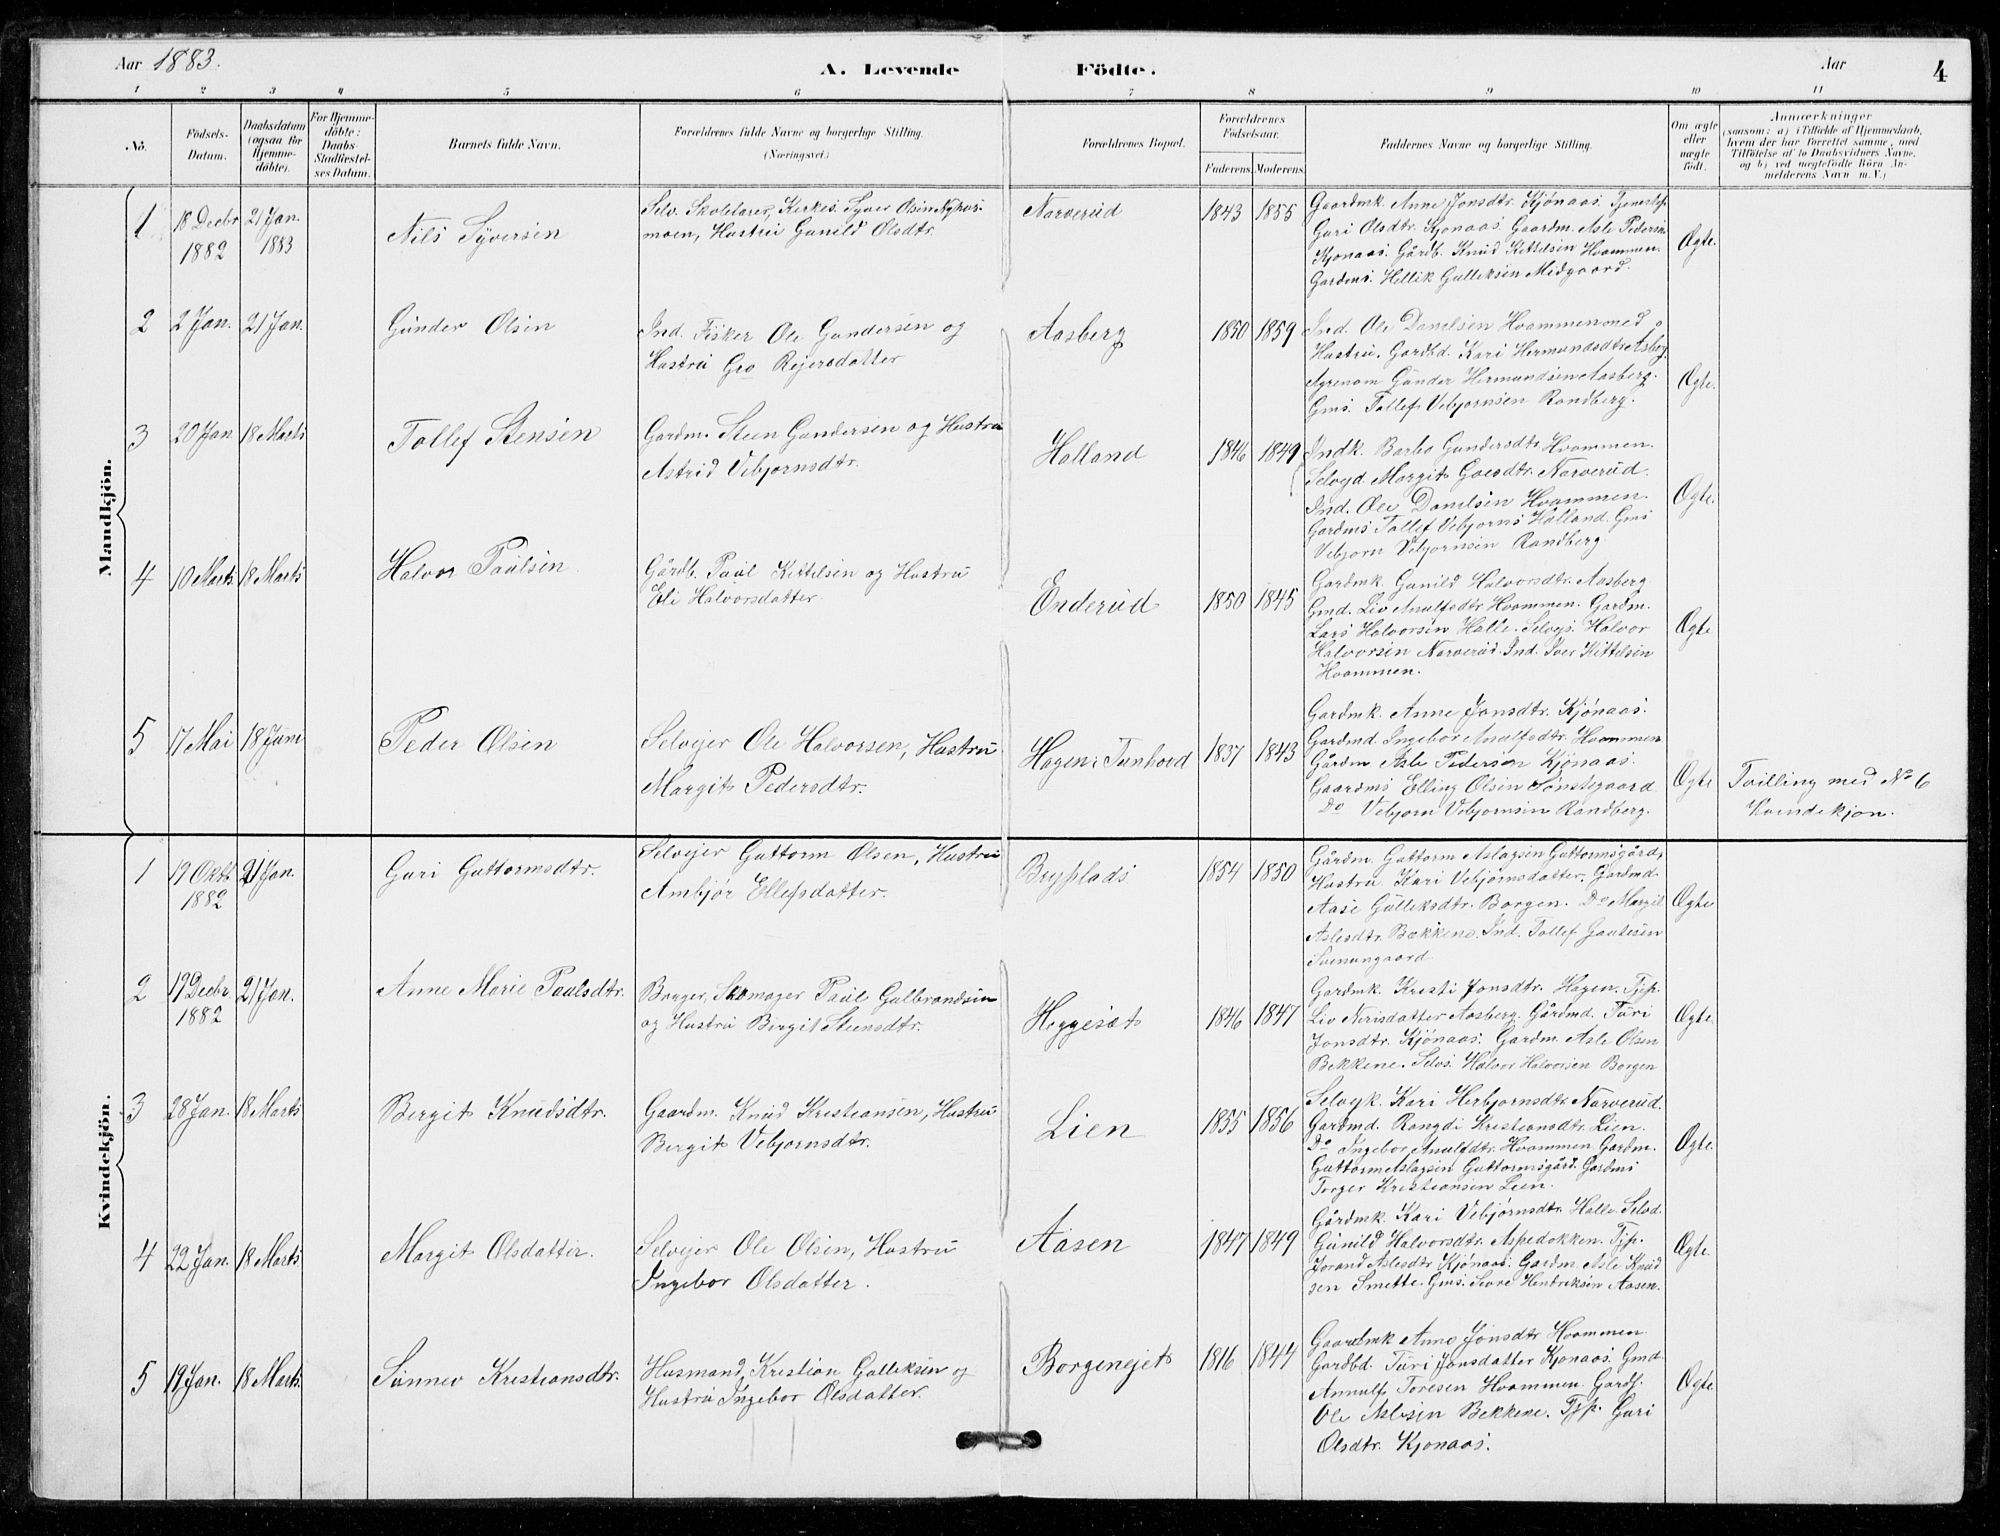 Aar 1883.
A. Levende Födte.
Aar 4
1 2 3 4 5 6 7 8 9 10 11
No. Födsels-Datum. Daabsdatum (ogsaa for Hjemmedöbte). For Hjemmedöbte: Daabs-Stadfæstelses Datum. Barnets fulde Navn. Forældrenes fulde Navne og borgerlige Stilling. (Næringsvei.) Forældrenes Bopæl. Forældrenes Födselsaar. Faderens. Moderens. Faddernes Navne og borgerlige Stilling. Om ægte eller uægte födt.
Anmærkninger
(saasom: a) i Tilfælde af Hjemmedaab,
hvem der har forrettet samme, med
Tilföielse af to Daabsvidners Navne,
og b) ved uægtefödte Börn An-
melderens Navn m. V.)
Mandkjön.
1 18 Decbr 1882 21 Jan. 1883 Nils Syversen
Selv. Skolelærer, Kirkes. Syver Olsen
moen, Hustru Gunild Olsdtr.
Narverud 1843 1855
Gaardmk. Anne Jonsdtr. Kjønaas.
Guri Olsdtr. Kjonaas. Gaardm. Asle Pedersen
Kjonaas. Gårdb. Knud Kittelsen Hvammen.
Gardms. Hellik Gulleksen Medgaard.
Ægte.
2 2 Jan. 21 Jan. Gunder Olsen
Ind. Fisker Ole Gundersen og
Hustru Gro Rejersdatter
Aasberg 1850 1859
Ind. Ole Danelsen Hvammen med
Hustru. Gardbd. Kari Hermundsdtr Aasberg.
Gunder Hermundsen Aasberg.
Gms. Tollef Vebjornsen Randberg.
Ægte.
3 20 Jan 18 Marts Tollef Stensen
Gardm. Steen Gundersen og Hustru
Astrid Vebjornsdtr.
Halland 1846 1849
Indk. Barbo Gundersdtr. Hvammen.
Selvgd. Margit Goesdtr. Narverud.
Ind. Ole Danelsen Hvammen.
Gardms Tollef Vebjorns Halland. Gms
Vebjorn Vebjornsen Randberg
Ægte.
4 10 Marts. 18 Marts Halvor Paulsen
Gårdb. Paul Kittelsen og Hustru
Eli Halvorsdatter.
Enderud 1850 1845
Gardmk. Gunild Halvorsdtr. Aasberg
Gmd. Liv Anulfsdtr. Hvammen. Gardm.
Lars Halvorsen Halle. Selvejs. Halvor
Halvorsen Narverud. Ind. Iver Kittelsen
Hvammen.
Ægte
5 17 Mai 18 Juni Peder Olsen
Selvejer Ole Halvorsen, Hustru
Margit Pedersdtr.
Hagen i Tunhovd 1837 1843
Gardmk. Anne Jonsdtr. Kjónaas.
Gardmd. Ingebor Anulfsdtr. Hvammen
Gårdm Asle Pedersen Kjónaas.
Gaardms Elling Olsen Sønstegaard
Do Vebjorn Vebjornsen Randberg.
Ægte
Tvilling med No 6
Kvindekjon.
Kvindekjön.
1 19 Okt. 1882 21 Jan. Guri Guttormsdtr.
Selvejer Guttorm Olsen, Hustru
Ambjór Ellefsdatter.
Bryplads 1854 1850
Gårdm. Guttorm Aslagsen Guttormsgård,
Hustru Kari Vebjórnsdatter. Gardmd.
Aase Gulleksdtr. Borgen. Do Margit
Aslesdtr. Bækkene. Ind. Tollef Gautesen
Svenungaard
Ægte
2 19 Decbr. 1882 21 Jan. Anne Marie Paulsdtr.
Borger, Skomager Paul Gulbrandsen
og Hustru Birgit Steensdtr.
Heggesæt 1846 1847
Gardmk. Kristi Jonsdtr. Hagen. Tjp.
Liv Nirisdatter Aasberg. Gårdmd. Turi
Jonsdtr. Kjónaas. Gardm. Asle Olsen
Bekkene. Selvs. Halvor Halvorsen Borgen
Ægte.
3 28 Jan. 18 Marts Bergit Knudsdtr.
Gaardm. Knud Kristiansen, Hustru
Bergit Vebjornsdtr.
Lien 1855 1856
Selvgk. Kari Herbjornsdtr. Narverud.
Gardmd. Rangdi Kristiansdtr. Lien.
Do Ingebor Anulfdtr. Hvammen. Gardm.
Guttorm Aslagsen Guttormsgård. Gardms
Torger Kristiansen Lien.
Ægte.
4 22 Jan. 18 Marts Margit Olsdatter.
Selvejer Ole Olsen, Hustru
Ingebor Olsdatter.
Aasen 1847 1849
Gårdmk. Kari Vebjórnsdtr. Halle. Selvd.
Gunild Halvorsdtr. Aspedokken. Tjp.
Jorand Aslesdtr. Kjónaas. Gardm. Asle Knud
sen Smette. Gms. Sevre Hendriksen Aasen.
Ægte.
5 19 Jan. 18 Marts. Sunnev Kristiansdtr.
Husmand, Kristian Gulleksen og
Hustru Ingebor Olsdatter.
Borgenejet 1816 1844
Gaardmk Anne Jonsdtr Hvammen
Gardbd. Turi Jonsdatter Kjonaas. Gmd.
Annulf Toresen Hvammen. Gardf.
Ole Aslesen Bekkene. Tjp. Guri
Olsdtr. Kjonaas.
Ægte